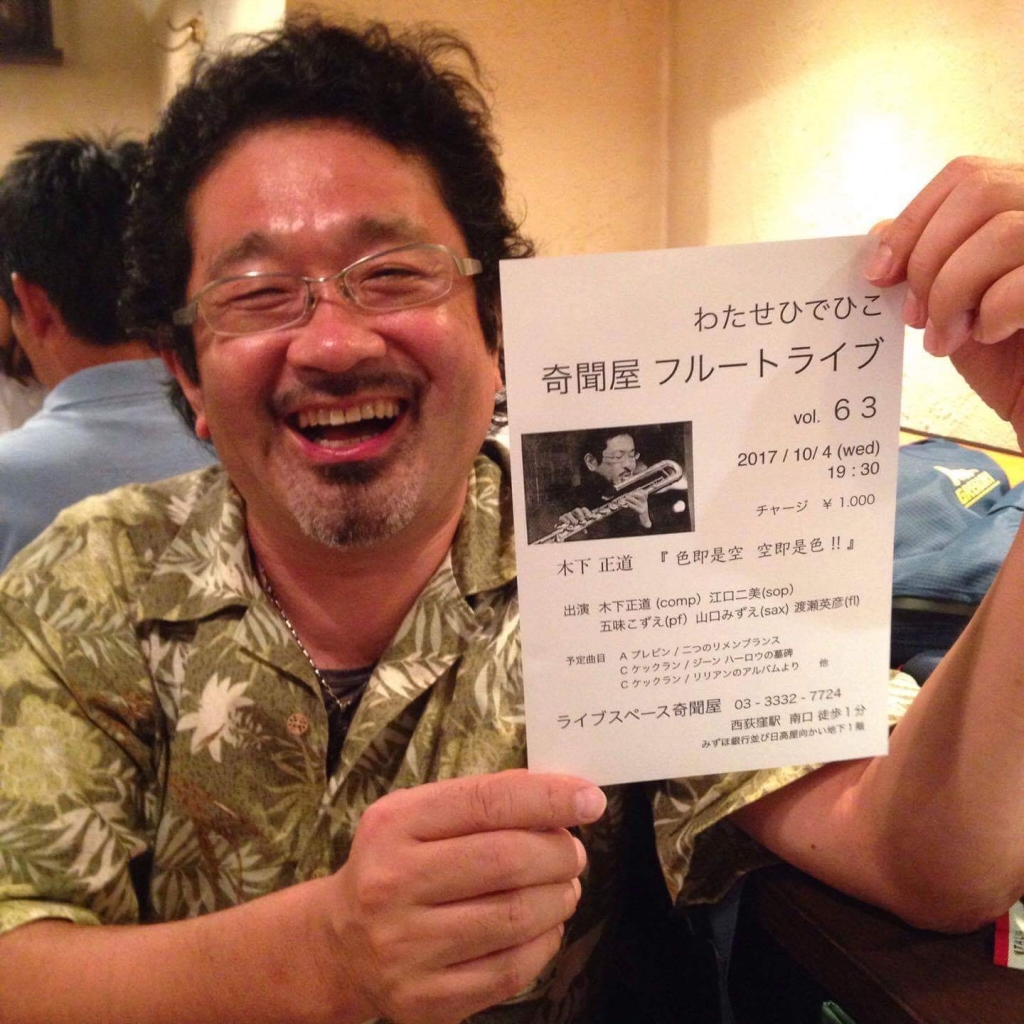 わたせひでひこ
奇聞屋 フルートライブ
vol. 63
2017 / 10/ 4 (wed)
19 : 30
チャージ ￥ 1.000
木下 正道 『 色即是空 空即是色 !! 』
出演 木下正道 (comp) 江口二美(sop)
五味こずえ(pf) 山口みずえ(sax) 渡瀬英彦(fl)
予定曲目 A プレビン / 二つのリメンブランス
C ケックラン / ジーン ハーロウの墓碑
C ケックラン / リリアンのアルバムより 他
ライブスペース奇聞屋 03 - 3332 - 7724
西荻窪駅 南口 徒歩１分
みずほ銀行並び日高屋向かい地下１階